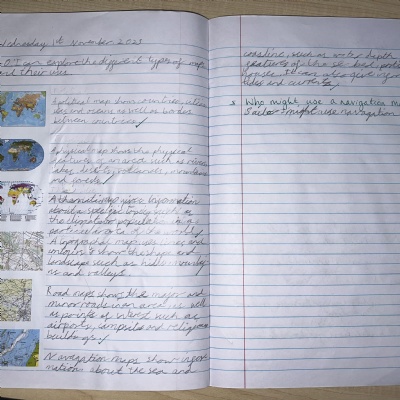 Wednesday 1st November 2023
L.O: I can explore the different types of map
and their uses.
Political map show countries,
and oceans as well as borders
between countries
Physical map shows the physical
features of an area such as rivers
lakes, deserts, volcanoes, mountains
and forests
A thematic map gives information
about a special topic such as
the climate or population in a
particular area of the world
A topographic map uses lines and
to show the shape and
landscape such as hills, mountai-
ns and valleys.
Road maps shows the major and
minor roads in an area as well
as points of interest such as
airports, campsites and religious
buildings
Navigation maps show infor-
mation about the sea and
coastline, such as water depth,
features of the sea bed, ports
It can also give
tides and currents
Who might use a navigation
Sailors might use navigation